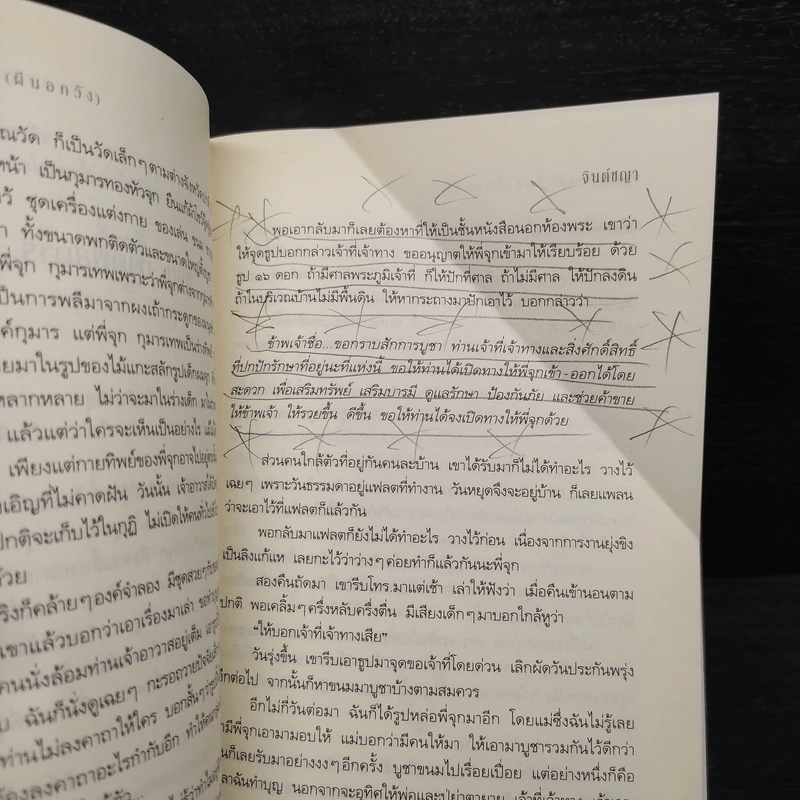 (ผีบอกวัง)
ณวัด ก็เป็นวัดเล็กๆตามต่างจังหวัด
หน้า เป็นกุมารทองหัวจุก
ชุดเครื่องแต่งกาย ของเล่น ขนม
ทั้งขนาดพกติดตัวและขนาดใหญ่
พี่จุก กุมารเทพเพราะว่าพี่จุกต่างจาก
เป็นการพลีมาจากผงเถ้ากระดูกของ
ค์กุมาร แต่พี่จุก กุมารเทพเป็นร่าง
ยมาในรูปของไม้แกะสลักรูปเด็กผมจุก
หลากหลาย ไม่ว่าจะมาในร่างเด็ก
แล้วแต่ว่าใครจะเห็นเป็นอย่างไร
เพียงแต่กายทิพย์ของพี่จุกอาจไปอยู่
งเอิญที่ไม่คาดฝัน วันนั้น เจ้าอาวาส
ปกติจะเก็บไว้ในกุฏิ ไม่เปิดให้คนทั่วไป
ด้วย
ริงก็คล้ายๆองค์จำลอง มีชุดสวยๆ
เขาแล้วบอกว่าเอาเรื่องมาเล่า
คนนั่งล้อมท่านเจ้าอาวาสอยู่เต็ม
บ ฉันก็นั่งดูเฉยๆ กะรอถวายปัจจัย
ท่านไม่ลงคาถาให้ใคร บอกสั้นๆว่า
้องลงคาถาอะไรกำกับอีก ทำให้คน
จินต์ชญา
พอเอากลับมาก็เลยต้องหาที่ให้เป็นชั้นหนังสือนอกห้องพระ เขาว่า
ให้จุดธูปบอกกล่าวเจ้าที่เจ้าทาง ขออนุญาตให้พี่จุกเข้ามาให้เรียบร้อย ด้วย
ธูป ๑๖ ดอก ถ้ามีศาลพระภูมิเจ้าที่ ก็ให้ปักที่ศาล ถ้าไม่มีศาล ให้ปักลงดิน
ถ้าในบริเวณบ้านไม่มีพื้นดิน ให้หากระถางมาปักเอาไว้ บอกกล่าวว่า
ข้าพเจ้าชื่อ...ขอกราบสักการบูชา ท่านเจ้าที่เจ้าทางและสิ่งศักดิ์สิทธิ์
ที่ปกปักรักษาที่อยู่นะที่แห่งนี้ ขอให้ท่านได้เปิดทางให้พี่จุกเข้า-ออกได้โดย
สะดวก เพื่อเสริมทรัพย์ เสริมบารมี ดูแลรักษา ป้องกันภัย และช่วยค้าขาย
ให้ข้าพเจ้า ให้รวยขึ้น ดีขึ้น ขอให้ท่านได้จงเปิดทางให้พี่จุกด้วย
ส่วนคนใกล้ตัวที่อยู่กันคนละบ้าน เขาได้รับมาก็ไม่ได้ทำอะไร วางไว้
เฉยๆ เพราะวันธรรมดาอยู่แฟลตที่ทำงาน วันหยุดจึงจะอยู่บ้าน ก็เลยแพลน
ว่าจะเอาไว้ที่แฟลตก็แล้วกัน
พอกลับมาแฟลตก็ยังไม่ได้ทำอะไร วางไว้ก่อน เนื่องจากการงานยุ่งขิง
เป็นลิงแก้แห เลยกะไว้ว่าว่างๆค่อยทำก็แล้วกันนะพี่จุก
สองคืนถัดมา เขารีบโทร.มาแต่เช้า เล่าให้ฟังว่า เมื่อคืนเข้านอนตาม
ปกติ พอเคลิ้มๆครึ่งหลับครึ่งตื่น มีเสียงเด็กๆมาบอกใกล้หูว่า
“ให้บอกเจ้าที่เจ้าทางเสีย”
วันรุ่งขึ้น เขารีบเอาธูปมาจุดขอเจ้าที่โดยด่วน เลิกผัดวันประกันพรุ่ง
อีกต่อไป จากนั้นก็หาขนมมาบูชาบ้างตามสมควร
อีกไม่กี่วันต่อมา ฉันก็ได้รูปหล่อพี่จุกมาอีก โดยแม่ซึ่งฉันไม่รู้เลย
ามีพี่จุกเอามามอบให้ แม่บอกว่ามีคนให้มา ให้เอามาบูชารวมกันไว้ดีกว่า
นก็เลยรับมาอย่างงงๆอีกครั้ง บูชาขนมไปเรื่อยเปื่อย แต่อย่างหนึ่งก็คือ
ลาฉันทำบุญ นอกจากจะอุทิศให้พ่อและปู่ย่าตายาย เจ้าที่เจ้าทาง